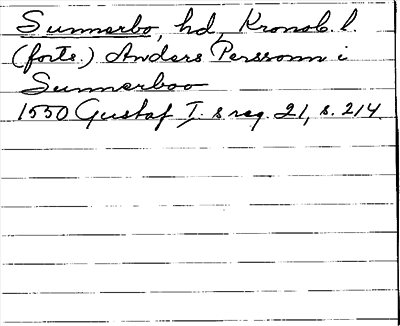 Sunnerbo, hd, Kronob. l.
(forts.) Anders Perssonn i
Sunnerboo
1550 Gustaf I:s reg. 21, s. 214.